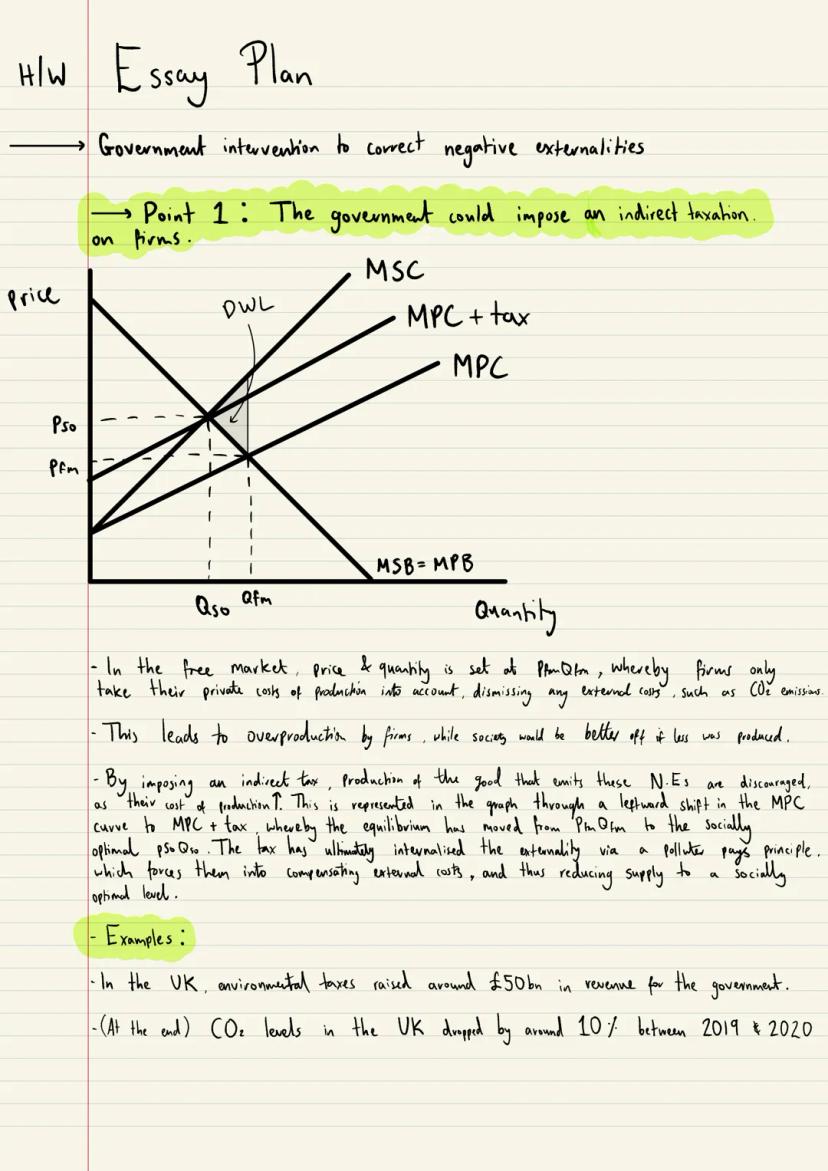 H/W Essay Plan
→ Government intervention to correct negative externalities
→ Point 1: The government could impose an indirect taxation.
on firms.
MSC
Price
DWL
MPC + tax
MPC
Pso
Pfm
MSB = MPB
Qso Qfm
Quantity
- In the free market, price & quantity is set at PfmQfm, whereby firms only
take their private costs of production into account, dismissing any external costs, such as CO2 emissions.
- This leads to overproduction by firms, while society would be better off if less was produced.
- By imposing an indirect tax, production of the good that emits these N.Es are discouraged,
as their cost of production↑. This is represented in the graph through a leftward shift in the MPC
curve to MPC + tax, whereby the equilibrium has moved from PfmQfm to the socially
optimal PsoQso. The tax has ultimately internalised the externality via a polluter pays principle,
which forces them into compensating external costs, and thus reducing supply to a socially
optimal level.
- Examples:
- In the UK, environmental taxes raised around £50bn in revenue for the government.
- (At the end) CO2 levels in the UK dropped by around 10% between 2019 & 2020